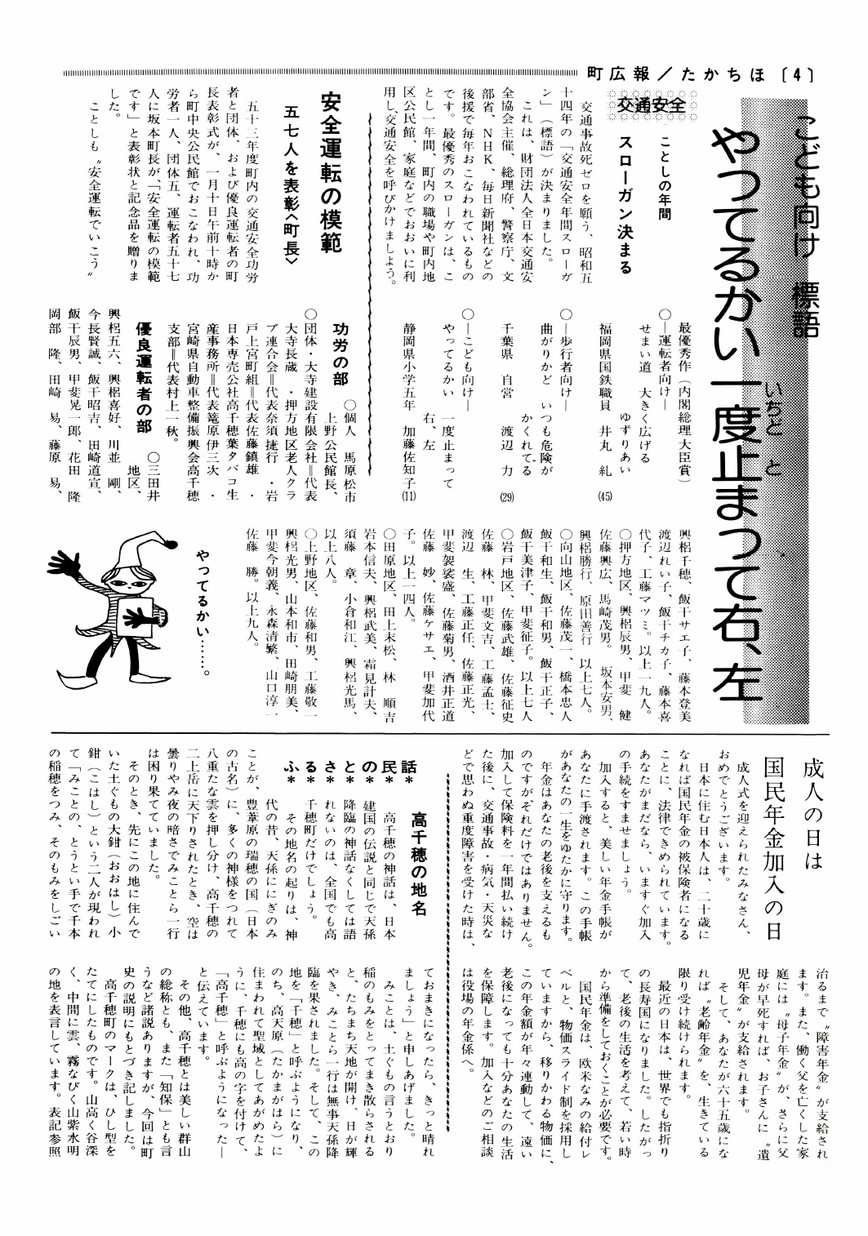 町広報／たかちほ〔4〕
こども向け 標語
やってるかい一度止まって右、左
いちど と
交通安全
ことしの年間
スローガン決まる
交通事故死ゼロを願う、昭和五
十四年の「交通安全年間スローガ
ン」（標語）が決まりました。
これは、財団法人全日本交通安
全協会主催、総理府、警察庁、文
部省、NHK、毎日新聞社などの
後援で毎年おこなわれているもの
です。最優秀のスローガンは、こ
とし一年間、町内の職場や町内地
区公民館、家庭などでおおいに利
用し、交通安全を呼びかけましょう。
最優秀作（内閣総理大臣賞）
〇―運転者向け―
せまい道 大きく広げる
ゆずりあい
福岡県国鉄職員 井丸 糺(45)
〇―歩行者向け―
曲がりかど いつも危険が
かくれてる
千葉県 自営 渡辺 力(29)
〇―こども向け―
やってるかい 一度止まって
右、左
静岡県小学五年 加藤佐知子(11)
安全運転の模範
五七人を表彰〈町長〉
五十三年度町内の交通安全功労
者と団体、および優良運転者の町
長表彰式が、一月十日午前十時か
ら町中央公民館でおこなわれ、功
労者一人、団体五、運転者五十七
人に坂本町長が、「安全運転の模範
です」と表彰状と記念品を贈りま
した。
ことしも〝安全運転でいこう〟
功労の部
〇個人 馬原松市
上野公民館長、
〇団体・大寺建設有限会社＝代表
大寺長蔵 ・押方地区老人クラ
ブ連合会＝代表奈須捷行 ・岩
戸上宮町組＝代表佐藤鎮雄 ・
日本専売公社高千穂葉タバコ生
産事務所＝代表篭原伊三次 ・
宮崎県自動車整備振興会高千穂
支部＝代表村上一秋。
優良運転者の部
〇三田井
地区、
興梠五六、興梠喜好、川並 剛、
今長賢誠、飯干昭吉、田崎道宣、
飯干辰男、甲斐晃一郎、花田 隆
岡部 隆、田崎 易、藤原 易、
興梠千穂、飯干サエ子、藤本登美
渡辺れい子、飯干チカ子、藤本喜
代子、工藤マツミ。以上一九人。
〇押方地区、興梠辰男、甲斐 健
佐藤興広、馬崎茂男。 坂本安男、
興梠勝行、原田善行 以上七人。
〇向山地区、佐藤茂一、橋本忠人
飯干和生、飯干和男、飯干正子、
飯干美津子、甲斐征子。以上七人
〇岩戸地区、佐藤武雄、佐藤征史
佐藤 林、甲斐文吉、工藤孟士、
渡辺 生、工藤正任、佐藤正光、
甲斐袈裟盛、佐藤菊男、酒井正道
佐藤 妙、佐藤ケサエ、甲斐加代
子。以上一四人。
〇田原地区、田上末松、林 順吉
岩本信夫、興梠武美、霜見計夫、
須藤 章、小倉和江、興梠光馬、
以上八人。
〇上野地区、佐藤和男、工藤敬一
興梠光男、山本和市、田崎朋美、
甲斐今朝義、永森清繁、山口淳一
佐藤 勝。以上九人。
やってるかい……。
成人の日は
国民年金加入の日
成人式を迎えられたみなさん、
おめでとうございます。
日本に住む日本人は、二十歳に
なれば国民年金の被保険者になる
ことに、法律できめられています。
あなたがまだなら、いますぐ加入
の手続をすませましょう。
加入すると、美しい年金手帳が
あなたに手渡されます。この手帳
があなたの一生をゆたかに守ります。
年金はあなたの老後を支えるも
のですがそれだけではありません。
加入して保険料を一年間払い続け
た後に、交通事故・病気・天災な
どで思わぬ重度障害を受けた時は、
治るまで〝障害年金〟が支給され
ます。また、働く父を亡くした家
庭には〝母子年金〟が、さらに父
母が早死すれば、お子さんに〝遺
児年金〟が支給されます。
そして、あなたが六十五歳にな
れば〝老齢年金〟を、生きている
限り受け続けられます。
最近の日本は、世界でも指折り
の長寿国になりました。したがっ
て、老後の生活を考えて、若い時
から準備をしておくことが必要です。
国民年金は、欧米なみの給付レ
ベルと、物価スライド制を採用し
ていますから、移りかわる物価に、
この年金額が年々連動して、遠い
老後になっても十分あなたの生活
を保障します。加入などのご相談
は役場の年金係へ。
ふ＊る＊さ＊と＊の＊民＊話＊
高千穂の地名
高千穂の神話は、日本
建国の伝説と同じで天孫
降臨の神話なくしては語
れないのは、全国でも高
千穂町だけでしょう。
その地名の起りは、神
代の昔、天孫ににぎのみ
ことが、豊葦原の瑞穂の国（日本
の古名）に、多くの神様をつれて
八重たな雲を押し分け、高千穂の
二上岳に天下りされたとき、空は
曇りやみ夜の暗さでみことら一行
は困り果てていました。
そのとき、先にこの地に住んで
いた土ぐもの大鉗（おおはし）小
鉗（こはし）という二人が現われ
て「みことの、とうとい手で千本
の稲穂をつみ、そのもみをしごい
ておまきになったら、きっと晴れ
ましょう」と申しあげました。
みことは、土ぐもの言うとおり
稲のもみをとってまき散らされる
と、たちまち天地が開け、日が輝
やき、みことら一行は無事天孫降
臨を果されました。そして、この
地を「千穂」と呼ぶようになり、
のち、高天原（たかまがはら）に
住まわれて聖域としてあがめたよ
うに、千穂にも高の字を付けて、
「高千穂」と呼ぶようになった―
と伝えています。
その他、高千穂とは美しい群山
の総称とも、また「知保」とも言
うなど諸説ありますが、今回は町
史の説明にもとづき記しました。
高千穂町のマークは、ひし型を
たてにしたものです。山高く谷深
く、中間に雲、霧なびく山紫水明
の地を表言しています。表記参照